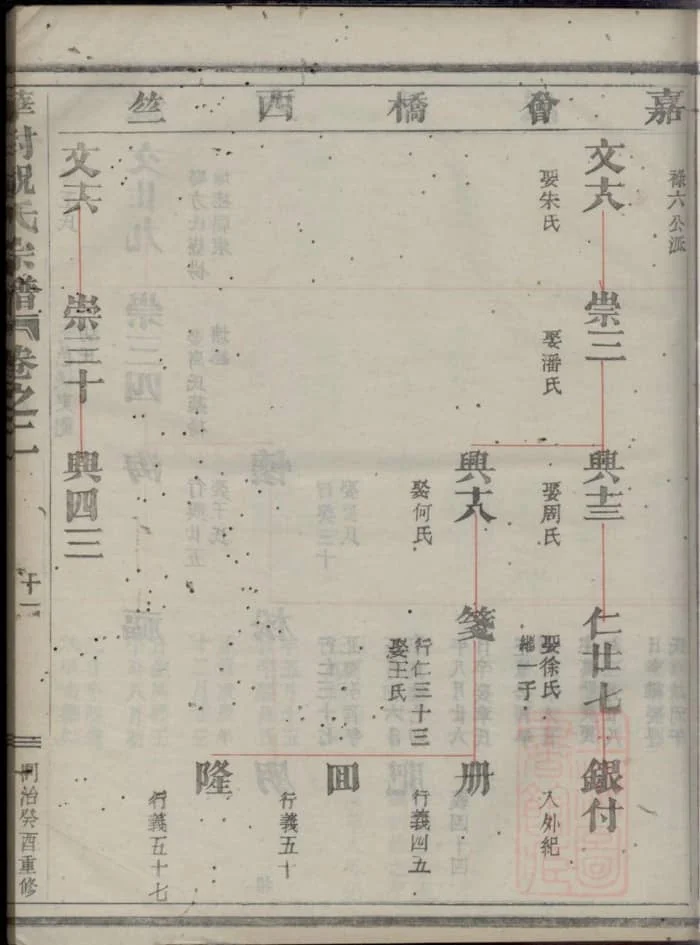 嘉會橋西竺
祿六公派
文十八
娶朱氏
崇三
娶潘氏
興十三
娶周氏
仁廿七
娶徐氏
繼一子
銀付
入外紀
興十八
娶何氏
箋
行仁三十三
娶王氏
册
行義四五
回
行義五十
隆
行義五十七
文十六
崇三十
興四三
祝氏宗譜
卷之二
十一
同治癸酉重修